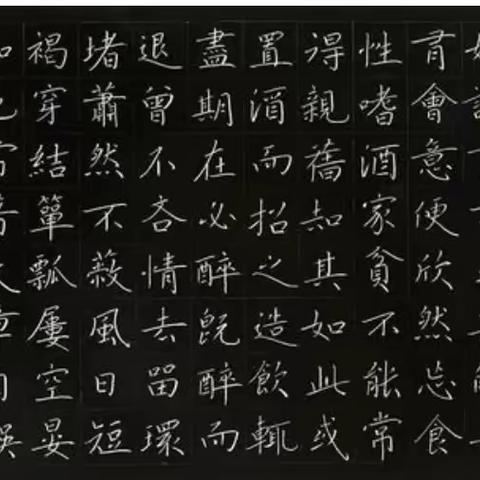 有會意便欣然忘食
性嗜酒家貧不能常
得親舊知其如此或
置酒而招之造飲輒
盡期在必醉既醉而
退曾不吝情去留環
堵蕭然不蔽風日短
褐穿結簞瓢屢空晏